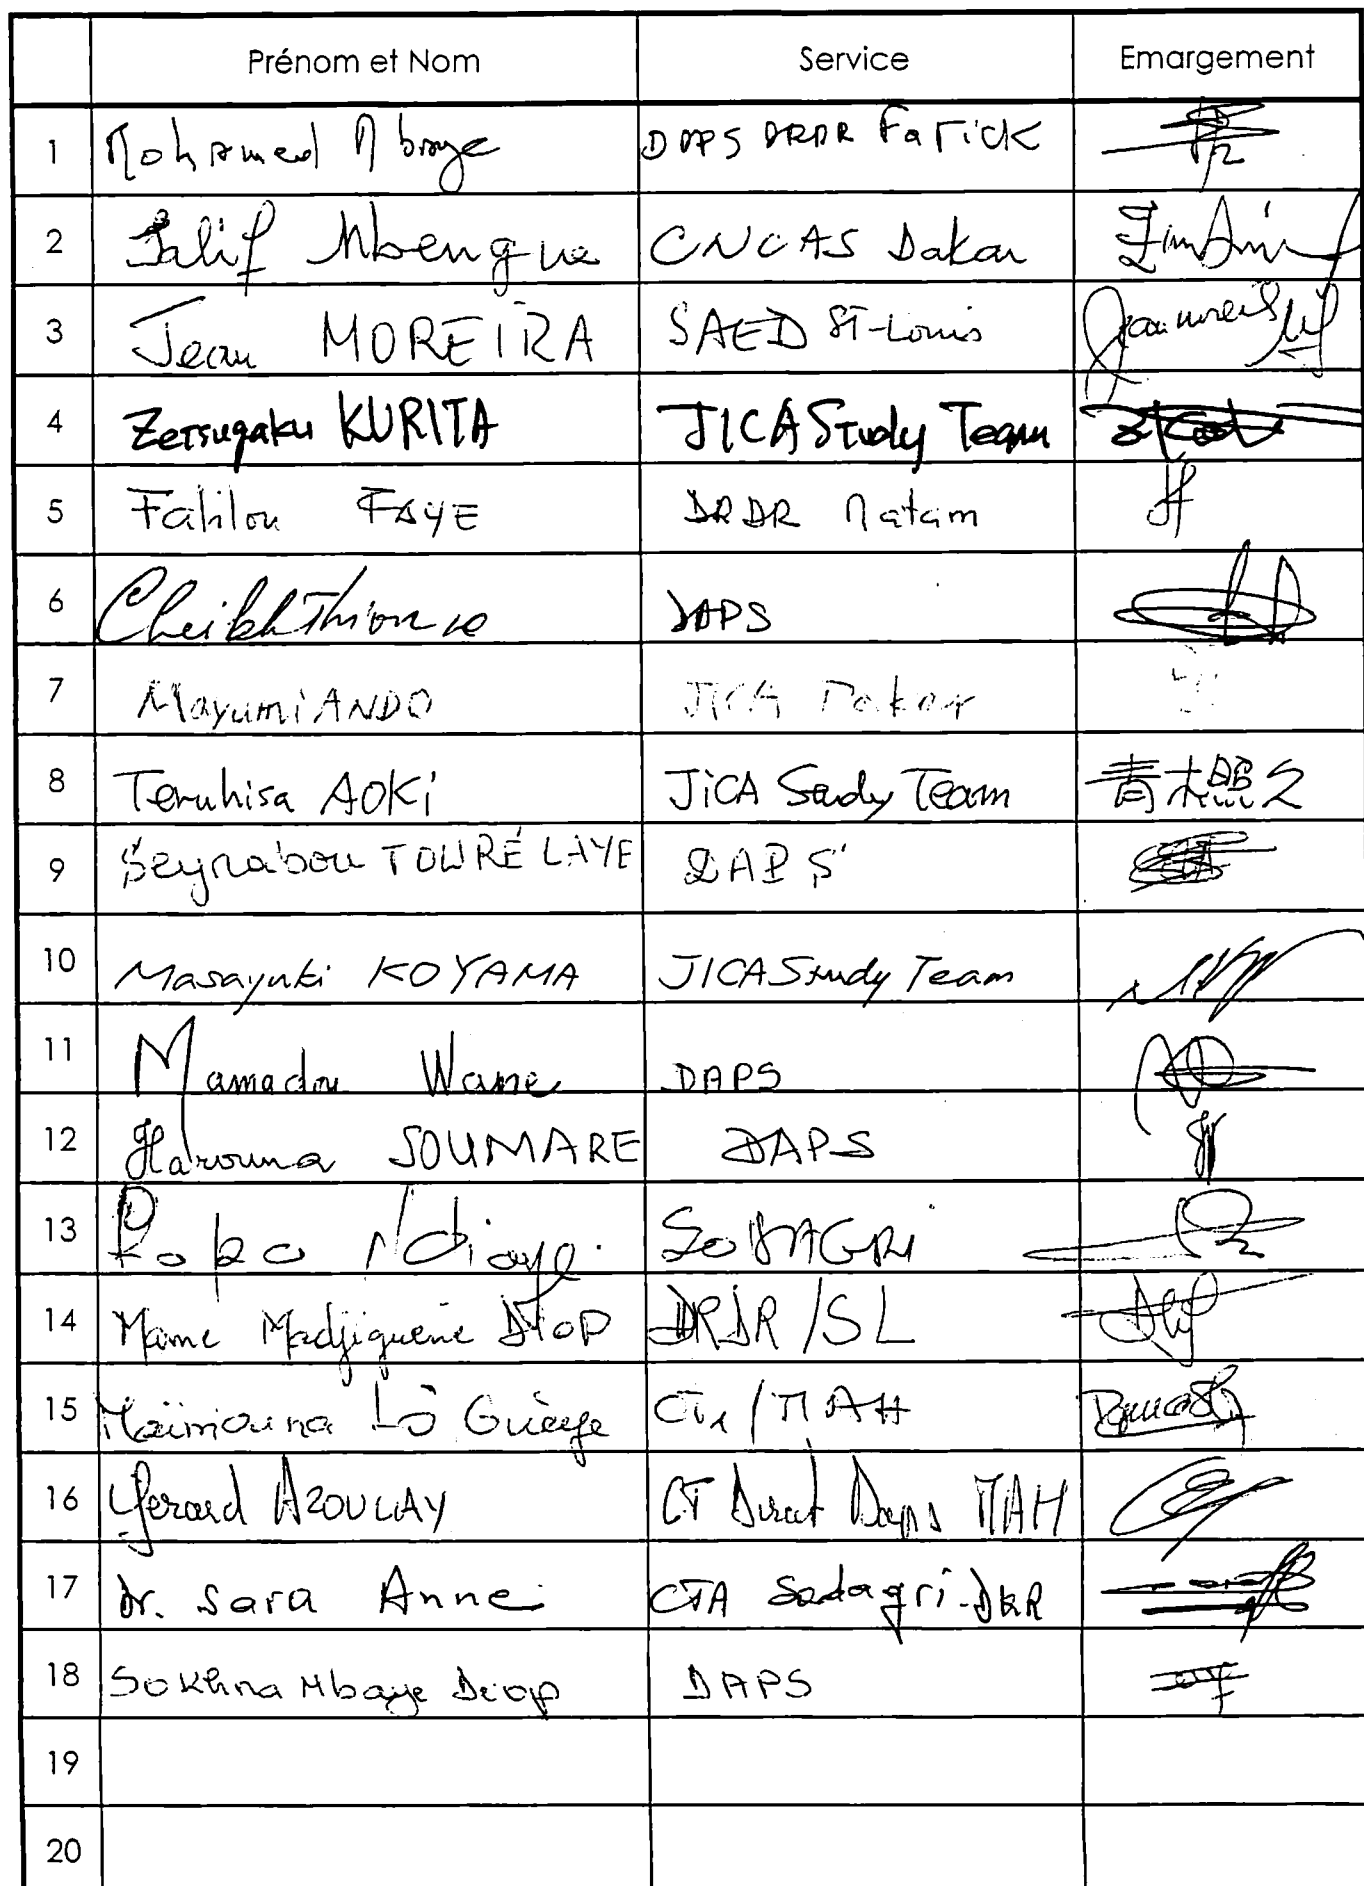 Prénom et Nom Service Emargement
1 Mohamed Mbaye DAPS DRDR Fatick
2 Salif Mbengue CNCAS Dakar
3 Jean MOREIRA SAED ST-Louis
4 Zetsugaku KURITA JICA Study Team
5 Falilou FAYE DRDR Matam
6 Cheikh Thioune DAPS
7 Mayumi ANDO JICA Dakar
8 Teruhisa AOKI JICA Study Team 青木照久
9 Seynabou TOURÉ LAYE DAPS
10 Masayuki KOYAMA JICA Study Team
11 Mamadou Wane DAPS
12 Harouna SOUMARE DAPS
13 Ndiaye SODAGRI
14 Mame Madjiguène DIOP DRDR/SL
15 Maïmouna Lô Guèye /MAH
16 Gerard AZOULAY CT Daps MAH
17 Dr. Sara Anne CTA Sodagri-DKR
18 Sokhna Mbaye Diop DAPS
19
20